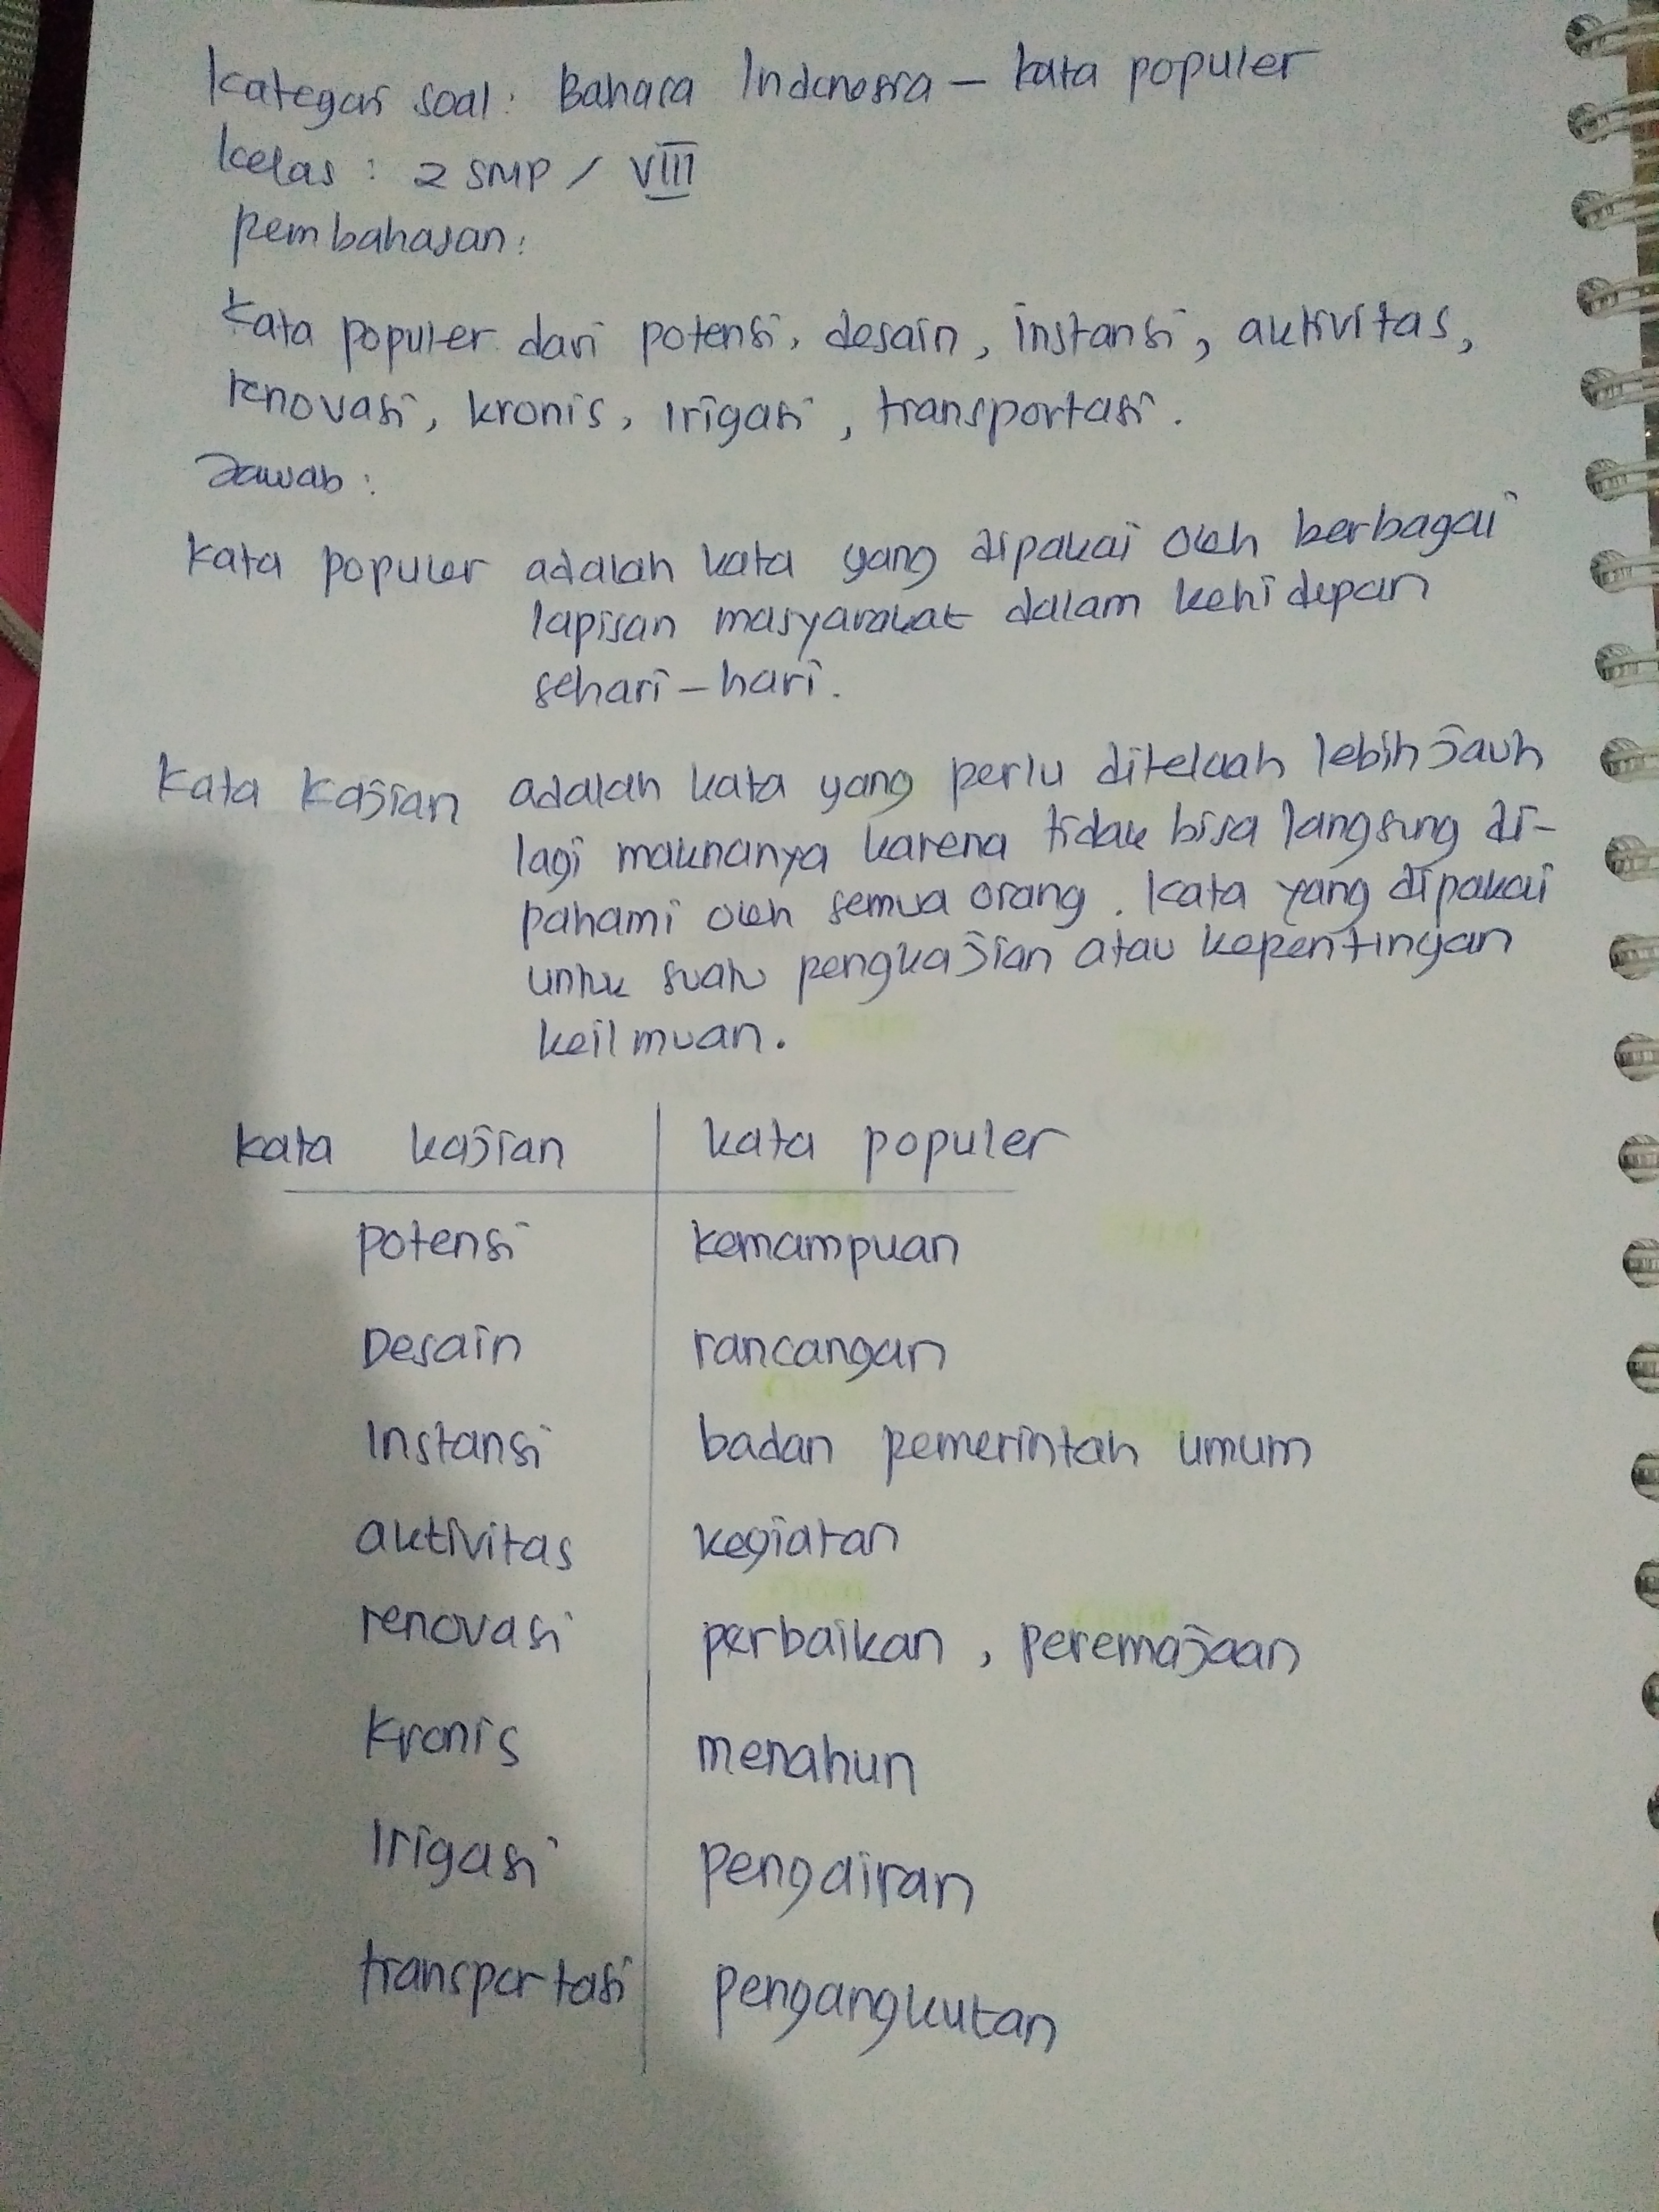 Kategori soal : Bahasa Indonesia – kata populer
Kelas : 2 SMP / VIII
Pembahasan :
Kata populer dari potensi, desain, instansi, aktivitas,
renovasi, kronis, irigasi, transportasi.
Jawab :
Kata populer adalah kata yang dipakai oleh berbagai
lapisan masyarakat dalam kehidupan
sehari – hari.
Kata Kajian adalah kata yang perlu ditelaah lebih jauh
lagi maknanya karena tidak bisa langsung di-
pahami oleh semua orang. Kata yang dipakai
untuk suatu pengkajian atau kepentingan
keilmuan.
kata kajian | kata populer
potensi | kemampuan
Desain | rancangan
Instansi | badan pemerintah umum
aktivitas | kegiatan
renovasi | perbaikan, peremajaan
Kronis | menahun
Irigasi | pengairan
transportasi | pengangkutan